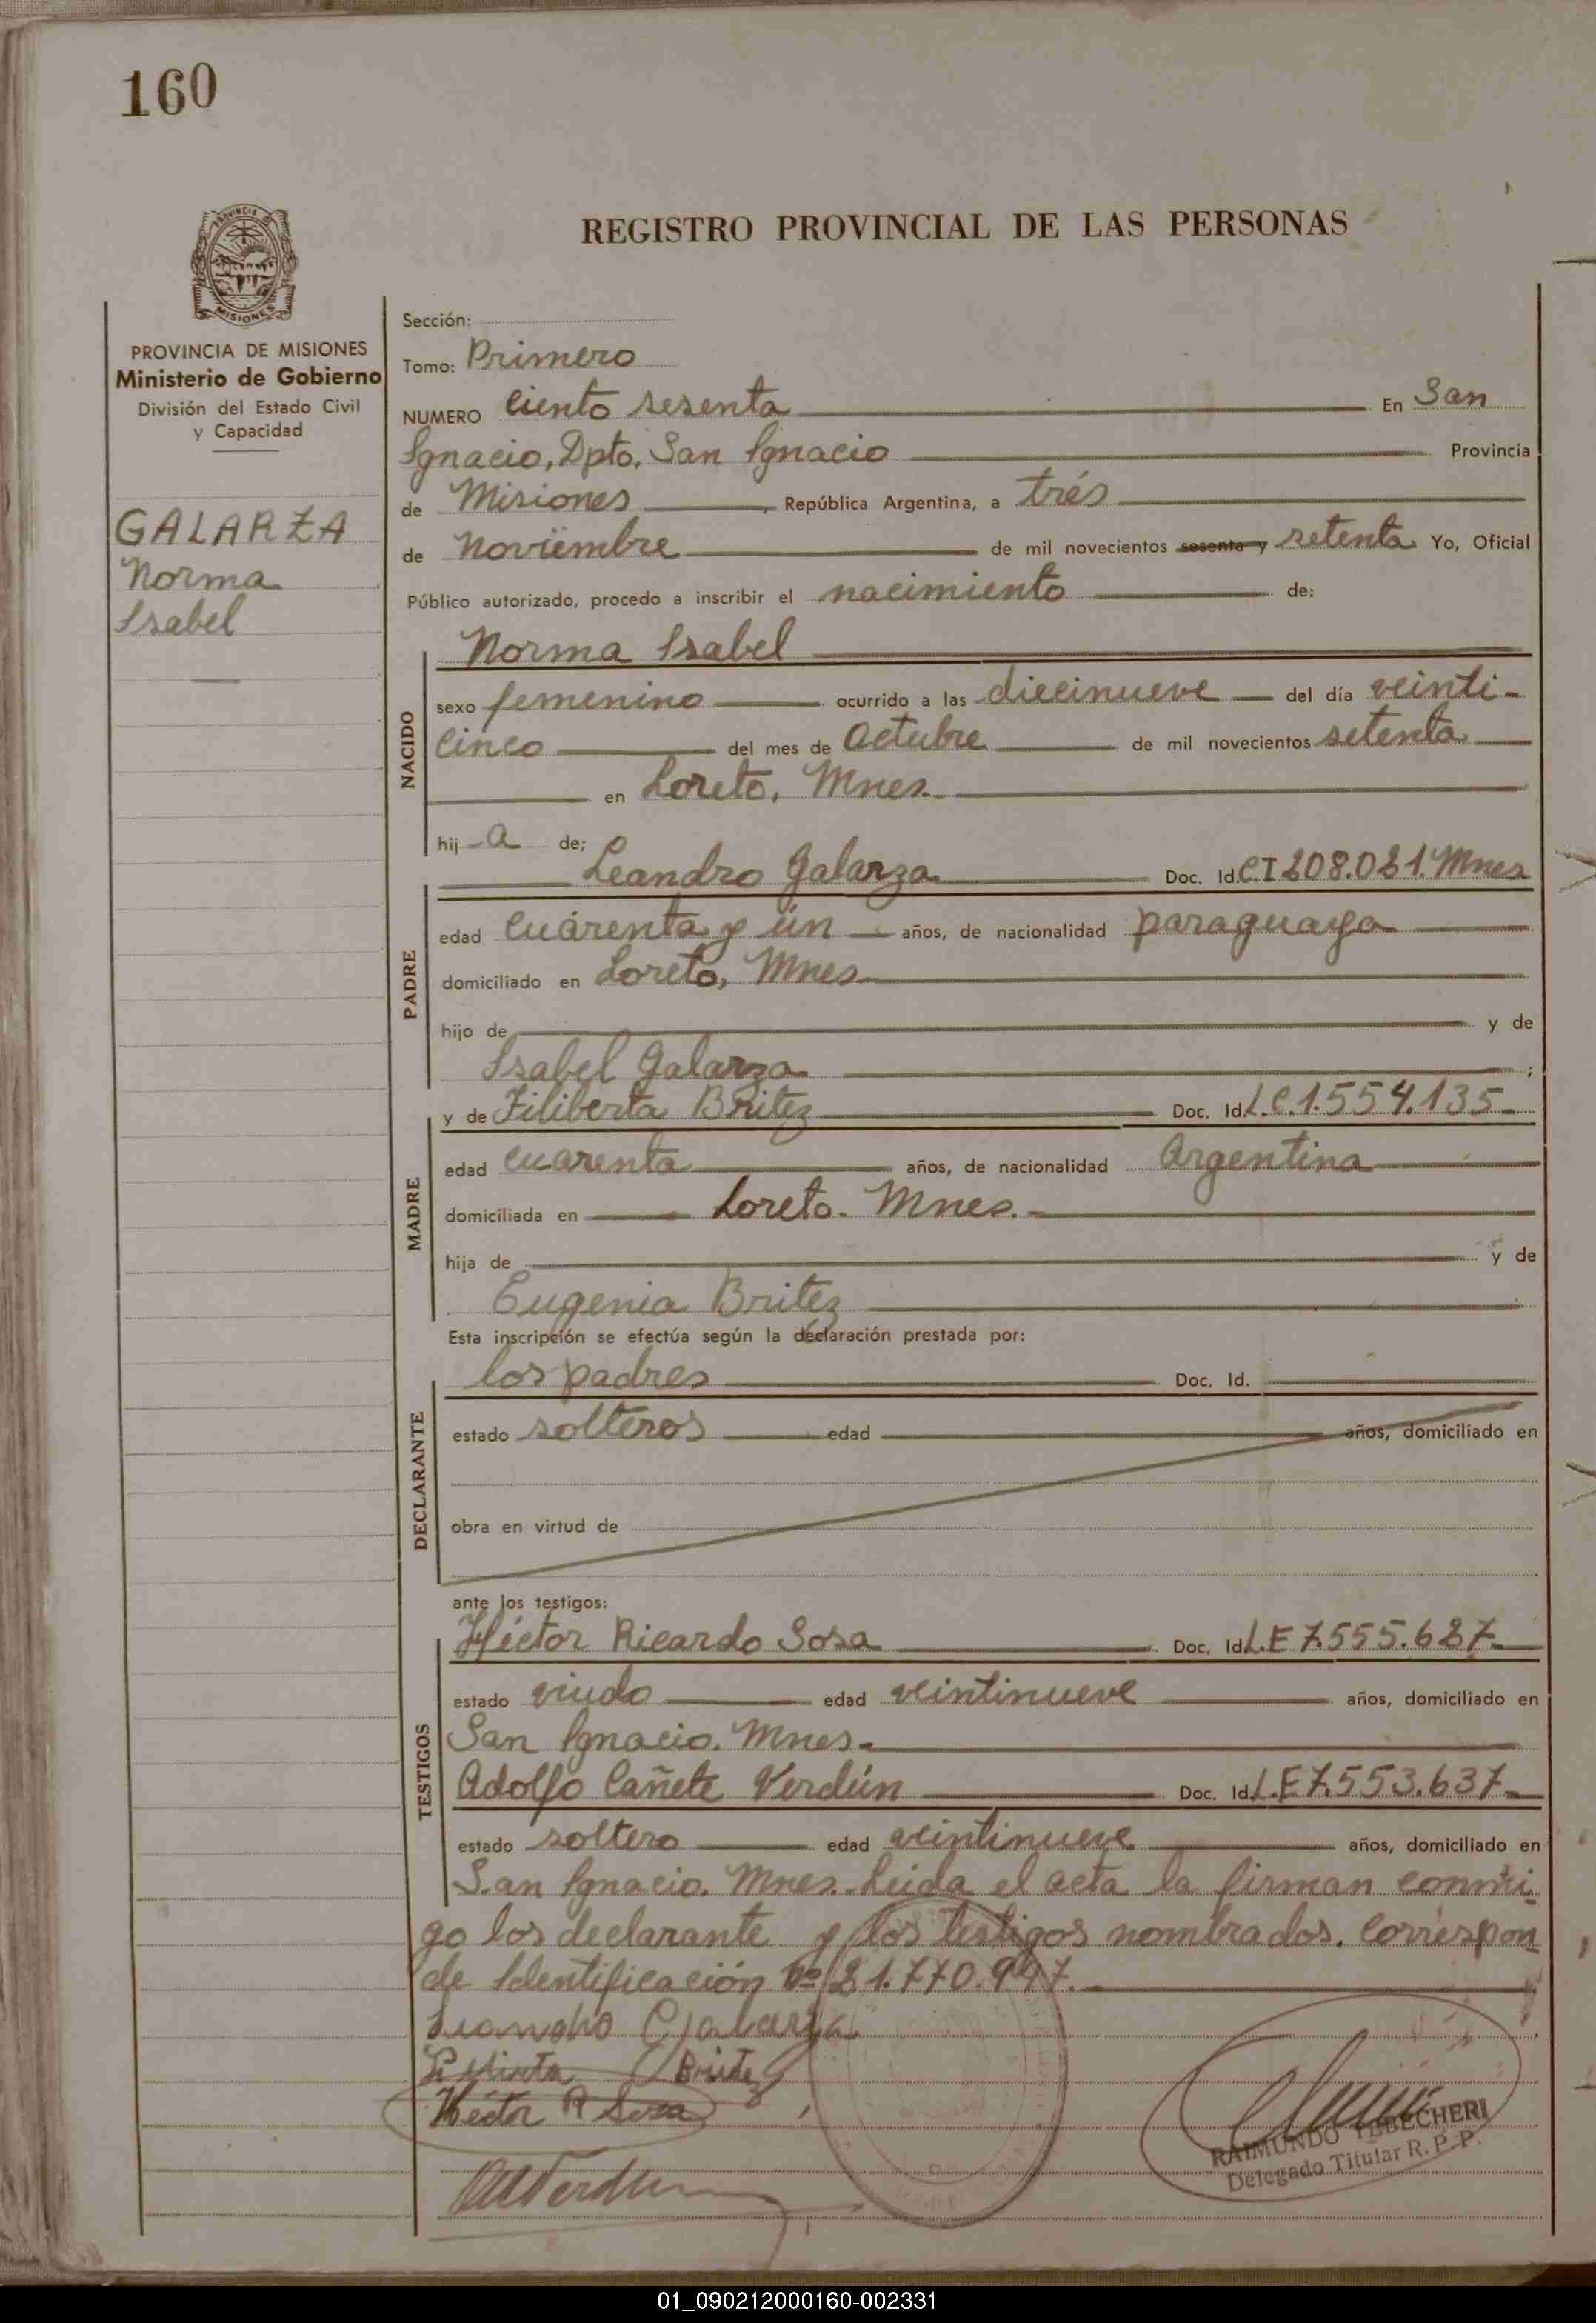 160
REGISTRO PROVINCIAL DE LAS PERSONAS
PROVINCIA DE
MISIONES
PROVINCIA DE MISIONES
Ministerio de Gobierno
División del Estado Civil
y Capacidad
GALARZA
Norma
Isabel
Sección:
Tomo: Primero
NUMERO Ciento sesenta En San
Ignacio, Dpto. San Ignacio Provincia
de Misiones, República Argentina, a trés
de noviembre de mil novecientos sesenta y setenta Yo, Oficial
Público autorizado, procedo a inscribir el nacimiento de:
NACIDO
Norma Isabel
sexo femenino ocurrido a las diecinueve del día veinti-
cinco del mes de Octubre de mil novecientos setenta
en Loreto, Mnes.
hij a de;
PADRE
Leandro Galarza Doc. Id. C.I 208.021. Mnes
edad cuárenta y ún años, de nacionalidad paraguaya
domiciliado en Loreto, Mnes
hijo de y de
Isabel Galarza ;
MADRE
y de Filiberta Britez Doc. Id. L.C. 1.554.135
edad cuarenta años, de nacionalidad Argentina
domiciliada en Loreto. Mnes.
hija de y de
Eugenia Britez
Esta inscripción se efectúa según la declaración prestada por:
DECLARANTE
los padres Doc. Id.
estado solteros edad años, domiciliado en
obra en virtud de
ante los testigos:
TESTIGOS
Héctor Ricardo Sosa Doc. Id. L.E 7.555.627
estado viudo edad veintinueve años, domiciliado en
San Ignacio. Mnes.
Adolfo Cañete Verdún Doc. Id. L.E 7.553.637
estado soltero edad veintinueve años, domiciliado en
San Ignacio. Mnes. Leida el acta la firman conmi-
go los declarante y los testigos nombrados. Correspon
de Identificación nº 21.770.947.
Leandro Galarza
Britez
Héctor R Sosa
RAIMUNDO TEBECHERI
Delegado Titular R. P. P.
01_090212000160-002331